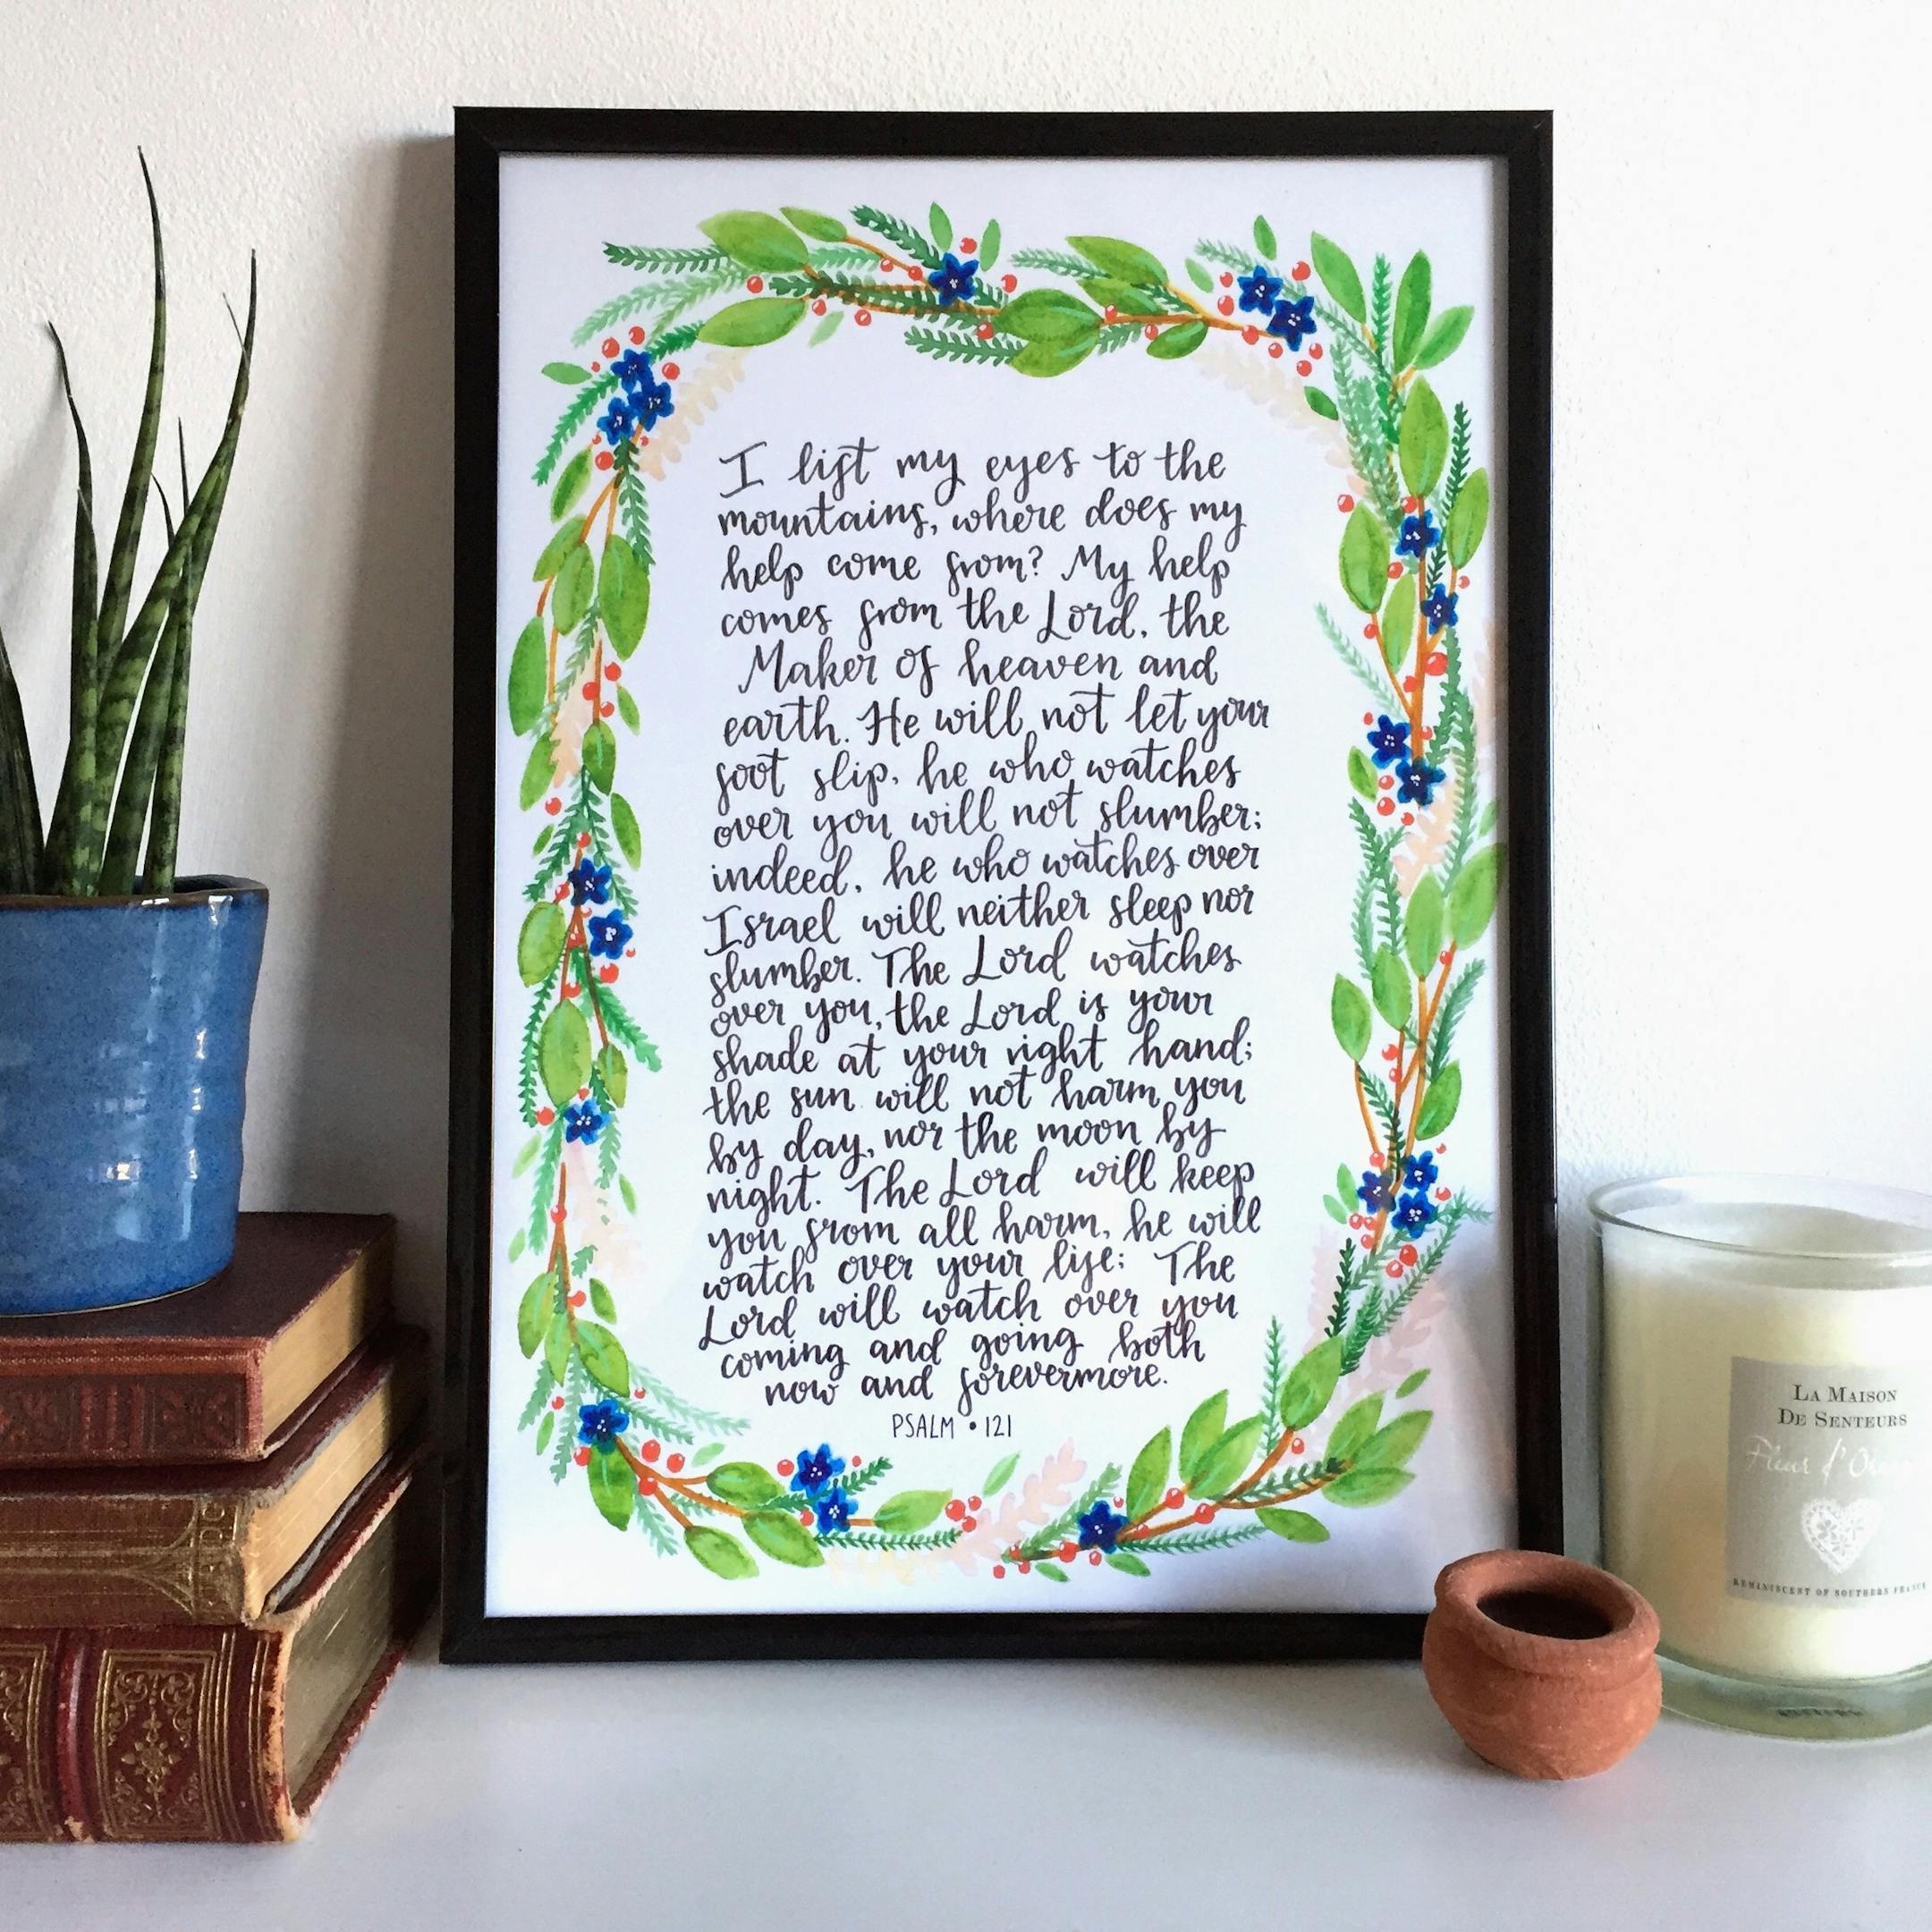 I lift my eyes to the
mountains, where does my
help come from? My help
comes from the Lord, the
Maker of heaven and
earth. He will not let your
foot slip, he who watches
over you will not slumber;
indeed, he who watches over
Israel will neither sleep nor
slumber. The Lord watches
over you, the Lord is your
shade at your right hand;
the sun will not harm you
by day, nor the moon by
night. The Lord will keep
you from all harm, he will
watch over your life; The
Lord will watch over you
coming and going both
now and forevermore.
PSALM • 121
LA MAISON
DE SENTEURS
Fleur d'
REMINISCENT OF SOUTHERN FRANCE